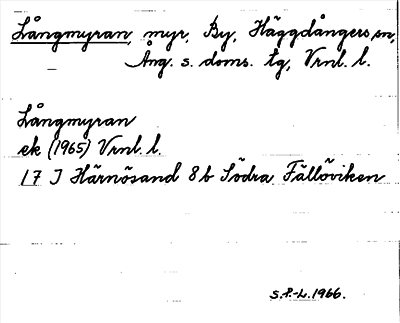 Långmyran, myr, By, Häggdångers sn,
Ång. s. doms. tg, Vrnl. l.
Långmyran
ek (1965) Vrnl. l.
17 J Härnösand 8b Södra Fällöviken
S.P.-L. 1966.